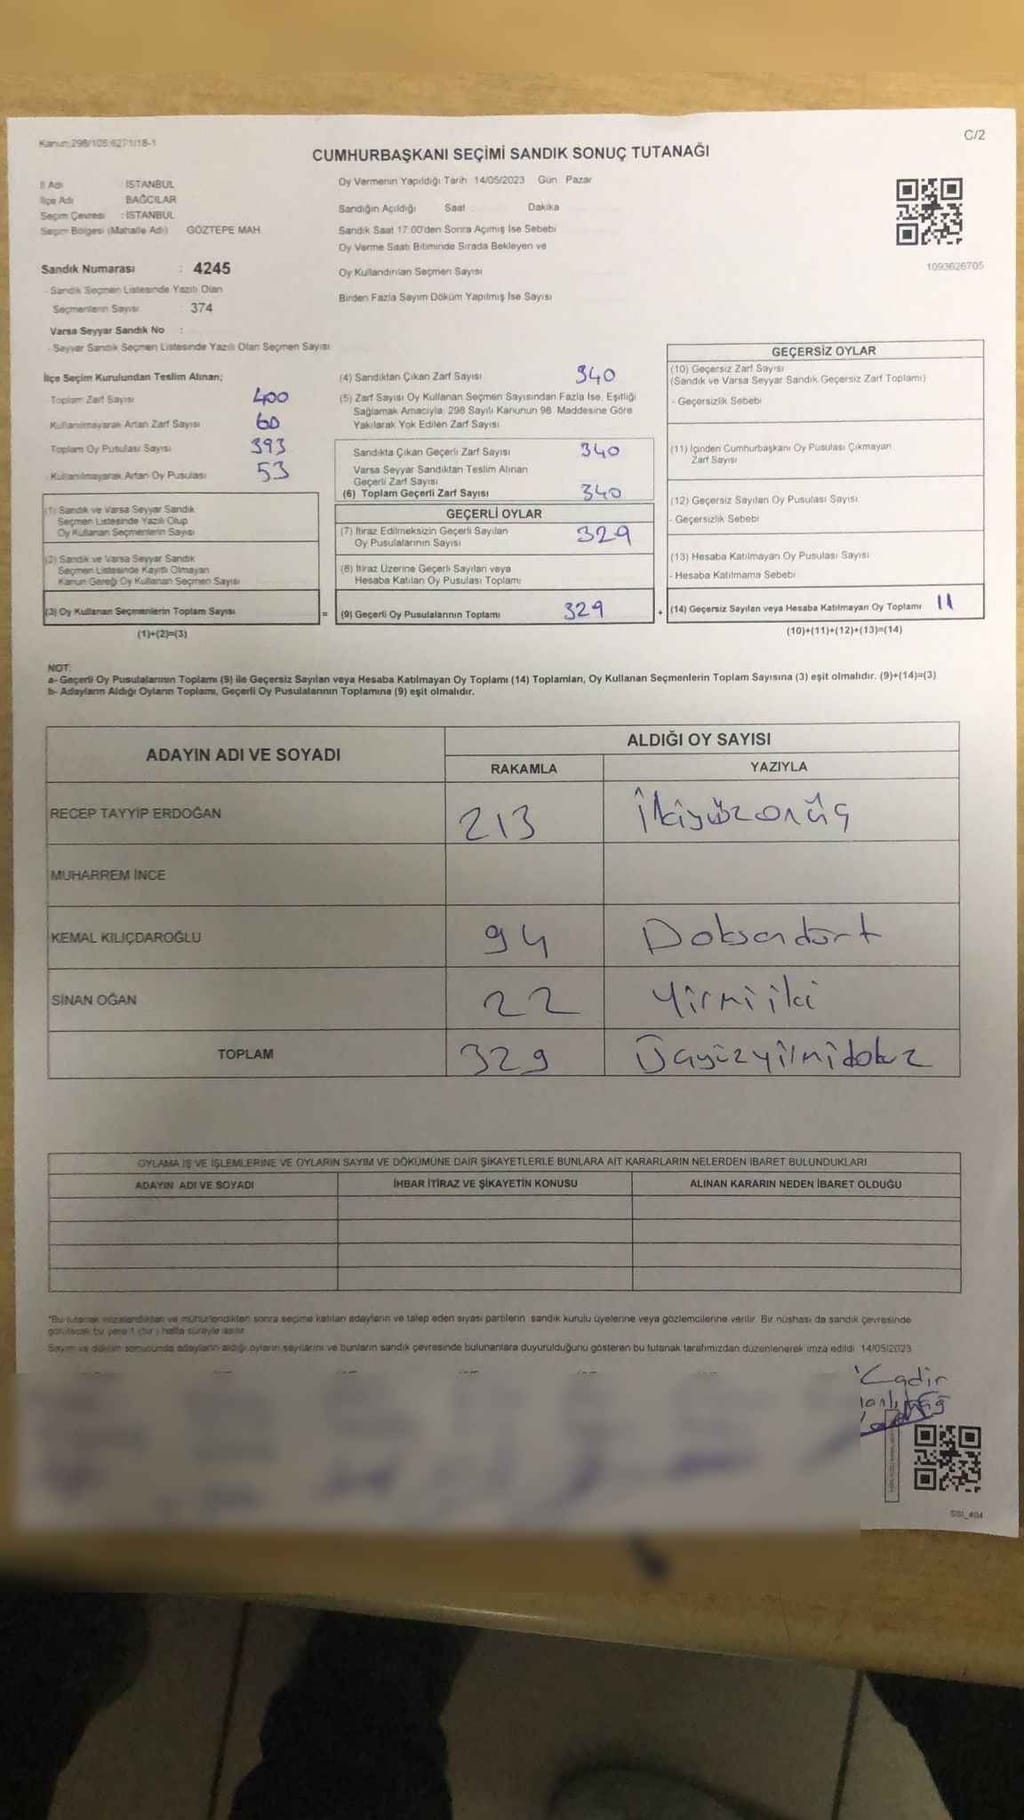 Kanun:298/105;6271/18-1
C/2
CUMHURBAŞKANI SEÇİMİ SANDIK SONUÇ TUTANAĞI
İl Adı İSTANBUL
İlçe Adı BAĞCILAR
Seçim Çevresi : İSTANBUL
Seçim Bölgesi (Mahalle Adı) GÖZTEPE MAH.
Sandık Numarası : 4245
- Sandık Seçmen Listesinde Yazılı Olan
Seçmenlerin Sayısı 374
Varsa Seyyar Sandık No :
- Seyyar Sandık Seçmen Listesinde Yazılı Olan Seçmen Sayısı
Oy Vermenin Yapıldığı Tarih 14/05/2023 Gün Pazar
Sandığın Açıldığı Saat Dakika
Sandık Saat 17:00'den Sonra Açımış İse Sebebi
Oy Verme Saati Bitiminde Sırada Bekleyen ve
Oy Kullandırılan Seçmen Sayısı
Birden Fazla Sayım Döküm Yapılmış İse Sayısı
1093626705
İlçe Seçim Kurulundan Teslim Alınan;
Toplam Zarf Sayısı 400
Kullanılmayarak Artan Zarf Sayısı 60
Toplam Oy Pusulası Sayısı 393
Kullanılmayarak Artan Oy Pusulası 53
(1) Sandık ve Varsa Seyyar Sandık
Seçmen Listesinde Yazılı Olup
Oy Kullanan Seçmenlerin Sayısı
(2) Sandık ve Varsa Seyyar Sandık
Seçmen Listesinde Kayıtlı Olmayan
Kanun Gereği Oy Kullanan Seçmen Sayısı
(3) Oy Kullanan Seçmenlerin Toplam Sayısı =
(1)+(2)=(3)
(4) Sandıktan Çıkan Zarf Sayısı 340
(5) Zarf Sayısı Oy Kullanan Seçmen Sayısından Fazla İse, Eşitliği
Sağlamak Amacıyla; 298 Sayılı Kanunun 98. Maddesine Göre
Yakılarak Yok Edilen Zarf Sayısı
Sandıkta Çıkan Geçerli Zarf Sayısı 340
Varsa Seyyar Sandıktan Teslim Alınan
Geçerli Zarf Sayısı
(6) Toplam Geçerli Zarf Sayısı 340
GEÇERLİ OYLAR
(7) İtiraz Edilmeksizin Geçerli Sayılan
Oy Pusulalarının Sayısı 329
(8) İtiraz Üzerine Geçerli Sayılan veya
Hesaba Katılan Oy Pusulası Toplamı
(9) Geçerli Oy Pusulalarının Toplamı 329 +
GEÇERSİZ OYLAR
(10) Geçersiz Zarf Sayısı
(Sandık ve Varsa Seyyar Sandık Geçersiz Zarf Toplamı)
- Geçersizlik Sebebi
(11) İçinden Cumhurbaşkanı Oy Pusulası Çıkmayan
Zarf Sayısı
(12) Geçersiz Sayılan Oy Pusulası Sayısı
- Geçersizlik Sebebi
(13) Hesaba Katılmayan Oy Pusulası Sayısı
- Hesaba Katılmama Sebebi
(14) Geçersiz Sayılan veya Hesaba Katılmayan Oy Toplamı 11
(10)+(11)+(12)+(13)=(14)
NOT:
a- Geçerli Oy Pusulalarının Toplamı (9) ile Geçersiz Sayılan veya Hesaba Katılmayan Oy Toplamı (14) Toplamları, Oy Kullanan Seçmenlerin Toplam Sayısına (3) eşit olmalıdır. (9)+(14)=(3)
b- Adayların Aldığı Oyların Toplamı, Geçerli Oy Pusulalarının Toplamına (9) eşit olmalıdır.
ADAYIN ADI VE SOYADI
ALDIĞI OY SAYISI
RAKAMLA YAZIYLA
RECEP TAYYİP ERDOĞAN 213 İkiyüzonüç
MUHARREM İNCE
KEMAL KILIÇDAROĞLU 94 Doksandört
SİNAN OĞAN 22 Yirmiiki
TOPLAM 329 Üçyüzyirmidokuz
OYLAMA İŞ VE İŞLEMLERİNE VE OYLARIN SAYIM VE DÖKÜMÜNE DAİR ŞİKAYETLERLE BUNLARA AİT KARARLARIN NELERDEN İBARET BULUNDUKLARI
ADAYIN ADI VE SOYADI İHBAR İTİRAZ VE ŞİKAYETİN KONUSU ALINAN KARARIN NEDEN İBARET OLDUĞU
*Bu tutanak imzalandıktan ve mühürlendikten sonra seçime katılan adayların ve talep eden siyasi partilerin sandık kurulu üyelerine veya gözlemcilerine verilir. Bir nüshası da sandık çevresinde
görülecek bir yere 1 (bir) hafta süreyle asılır.
Sayım ve döküm sonucunda adayların aldığı oyların sayılarını ve bunların sandık çevresinde bulunanlara duyurulduğunu gösteren bu tutanak tarafımızdan düzenlenerek imza edildi. 14/05/2023
Kadir
SSI_404